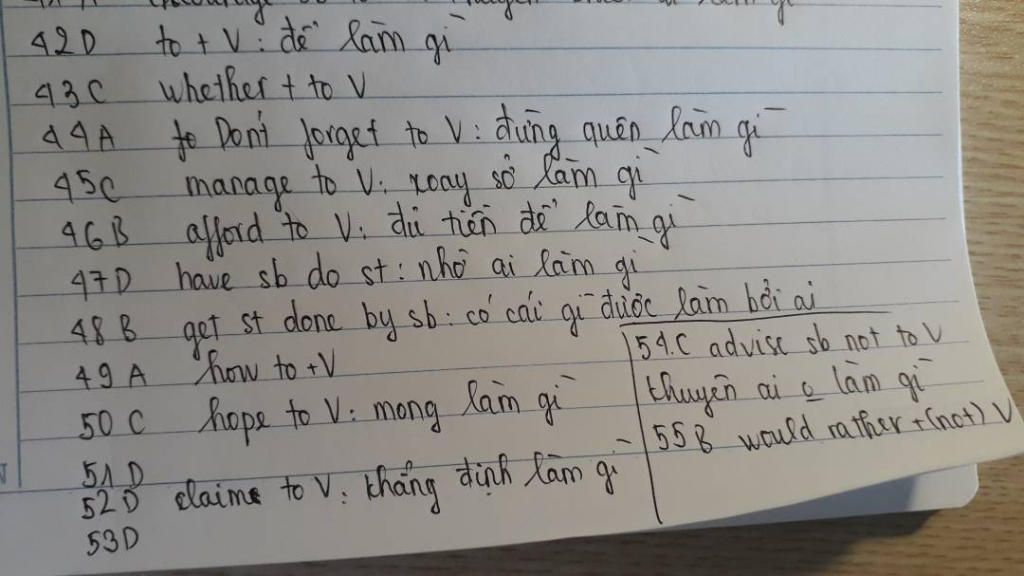 encourage sb to
42D to + V : để làm gì
43C whether + to V
44A to Don't forget to V : đừng quên làm gì
45C manage to V : xoay sở làm gì
46B afford to V : đủ tiền để làm gì
47D have sb do st : nhờ ai làm gì
48B get st done by sb : có cái gì được làm bởi ai
49A how to + V
50C hope to V : mong làm gì
51D
52D claime to V : khẳng định làm gì
53D
54.C advise sb not to V
khuyên ai o làm gì
55B would rather + (not) V